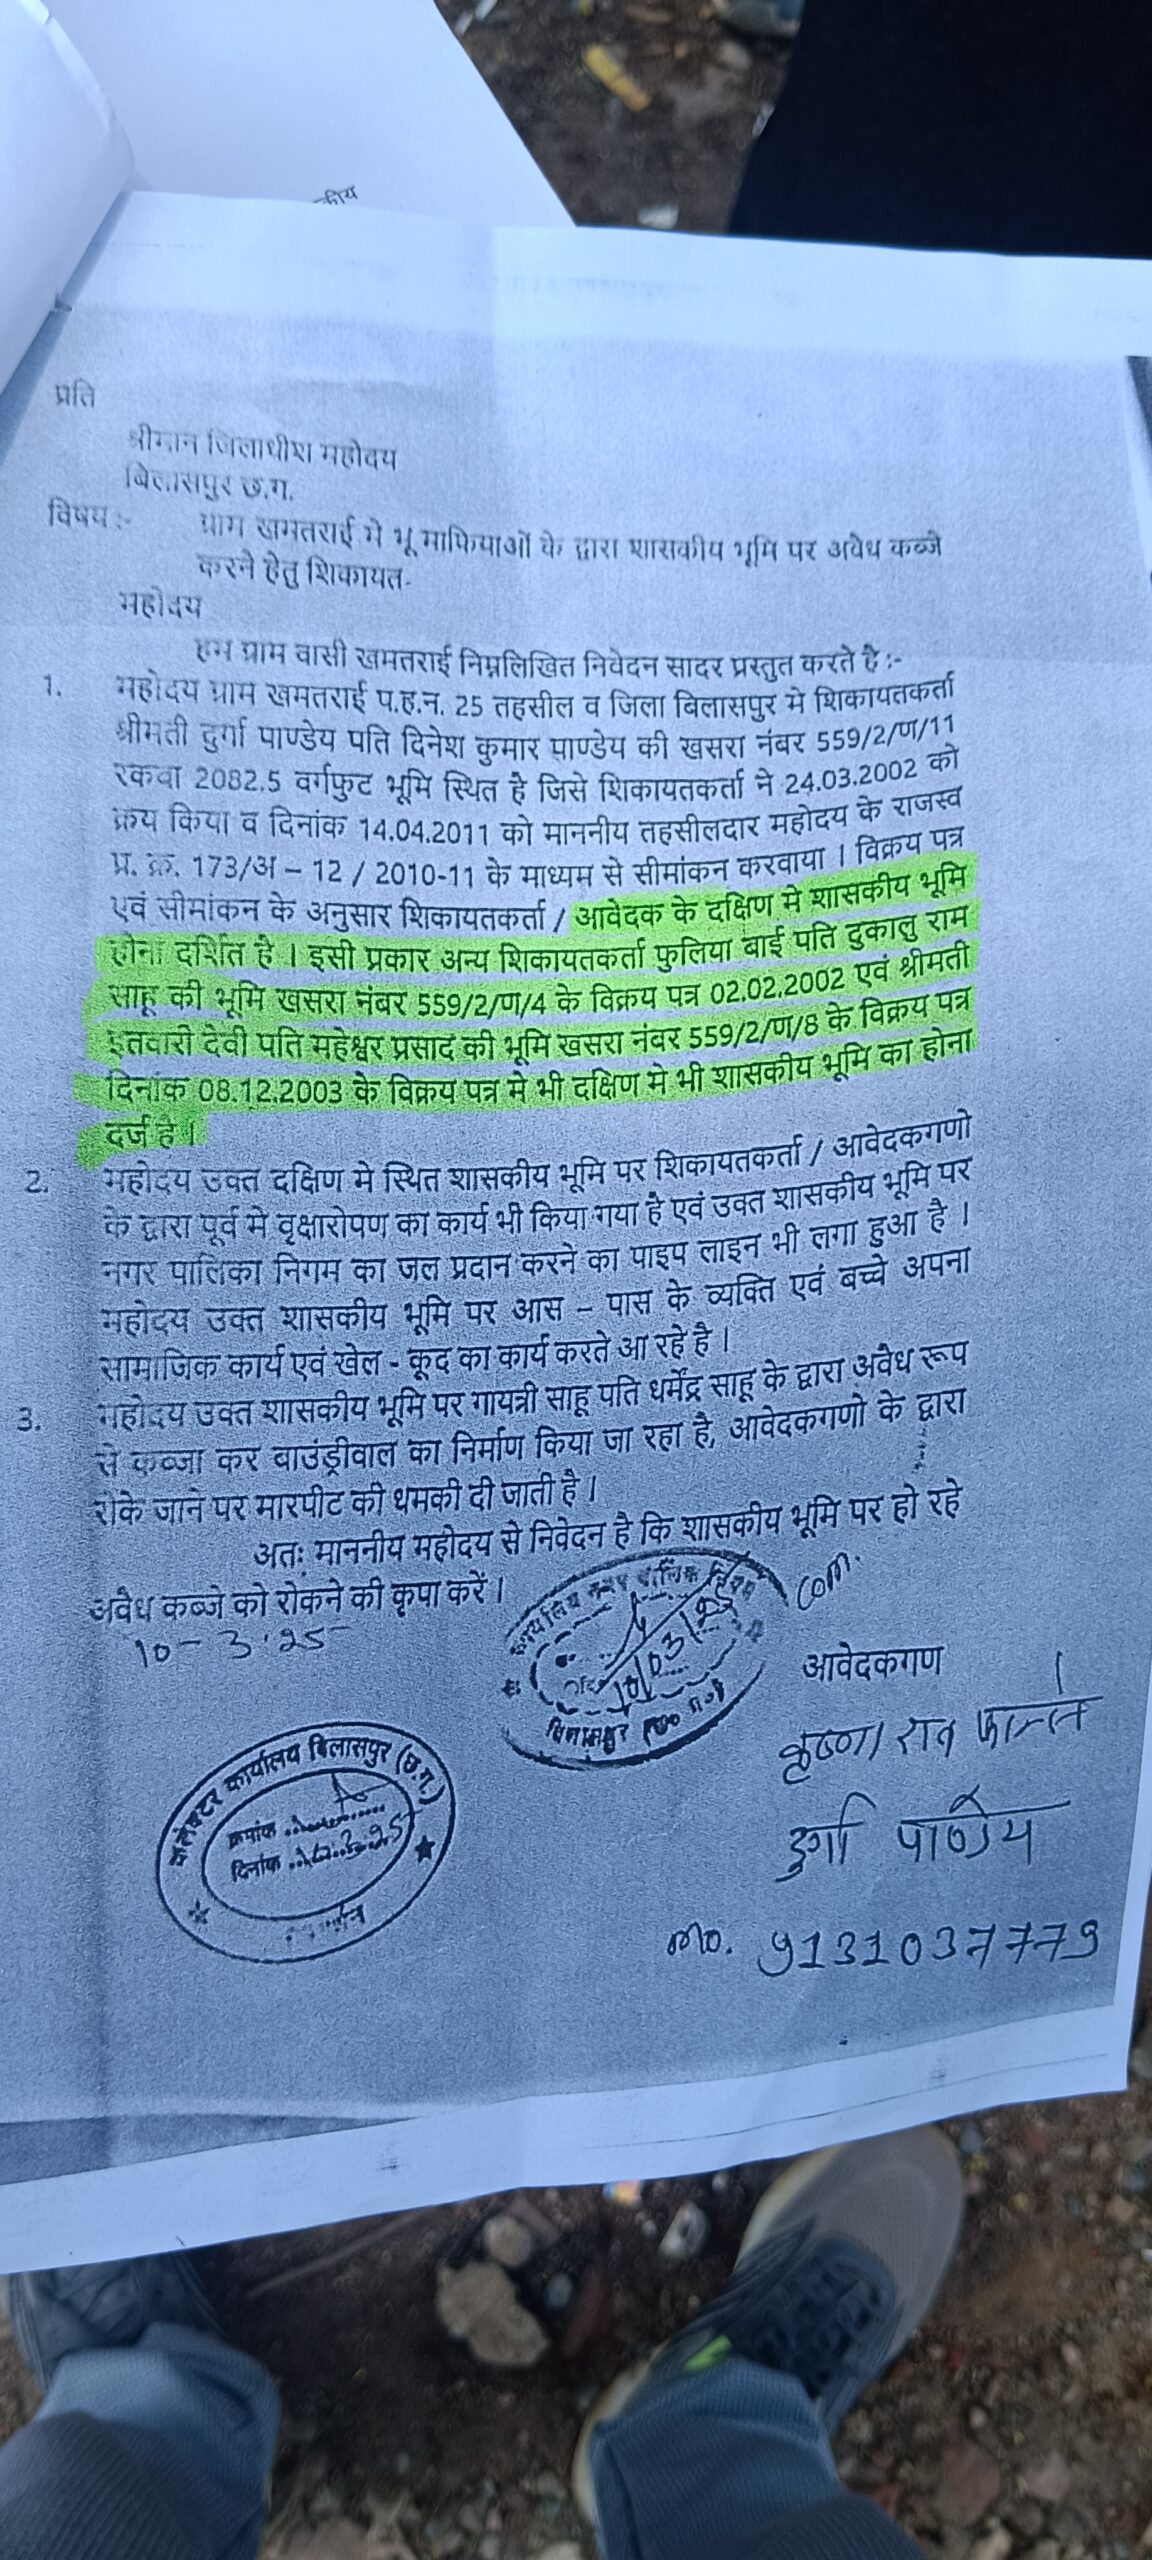 कीय
प्रति
श्रीमान जिलाधीश महोदय
बिलासपुर छ.ग.
विषय :- ग्राम खमतराई मे भू माफियाओं के द्वारा शासकीय भूमि पर अवैध कब्जे
करने हेतु शिकायत-
महोदय
हम ग्राम वासी खमतराई निम्नलिखित निवेदन सादर प्रस्तुत करते है :-
1. महोदय ग्राम खमतराई प.ह.न. 25 तहसील व जिला बिलासपुर मे शिकायतकर्ता
श्रीमती दुर्गा पाण्डेय पति दिनेश कुमार पाण्डेय की खसरा नंबर 559/2/ण/11
रकवा 2082.5 वर्गफुट भूमि स्थित है जिसे शिकायतकर्ता ने 24.03.2002 को
क्रय किया व दिनांक 14.04.2011 को माननीय तहसीलदार महोदय के राजस्व
प्र. क्र. 173/अ – 12 / 2010-11 के माध्यम से सीमांकन करवाया । विक्रय पत्र
एवं सीमांकन के अनुसार शिकायतकर्ता / आवेदक के दक्षिण मे शासकीय भूमि
होना दर्शित है । इसी प्रकार अन्य शिकायतकर्ता फुलिया बाई पति दुकालु राम
साहू की भूमि खसरा नंबर 559/2/ण/4 के विक्रय पत्र 02.02.2002 एवं श्रीमती
इतवारी देवी पति महेश्वर प्रसाद की भूमि खसरा नंबर 559/2/ण/8 के विक्रय पत्र
दिनांक 08.12.2003 के विक्रय पत्र मे भी दक्षिण मे भी शासकीय भूमि का होना
दर्ज है ।
2. महोदय उक्त दक्षिण मे स्थित शासकीय भूमि पर शिकायतकर्ता / आवेदकगणो
के द्वारा पूर्व मे वृक्षारोपण का कार्य भी किया गया है एवं उक्त शासकीय भूमि पर
नगर पालिका निगम का जल प्रदान करने का पाइप लाइन भी लगा हुआ है ।
महोदय उक्त शासकीय भूमि पर आस – पास के व्यक्ति एवं बच्चे अपना
सामाजिक कार्य एवं खेल - कूद का कार्य करते आ रहे है ।
3. महोदय उक्त शासकीय भूमि पर गायत्री साहू पति धर्मेंद्र साहू के द्वारा अवैध रूप
से कब्जा कर बाउंड्रीवाल का निर्माण किया जा रहा है, आवेदकगणो के द्वारा
रोके जाने पर मारपीट की धमकी दी जाती है ।
अतः माननीय महोदय से निवेदन है कि शासकीय भूमि पर हो रहे
अवैध कब्जे को रोकने की कृपा करें ।
10-3.25
10/03/25
com.
आवेदकगण
कृष्णा राव
दुर्गा पाण्डेय
कलेक्टर कार्यालय बिलासपुर (छ.ग.)
क्रमांक
दिनांक
mo. 9131037779